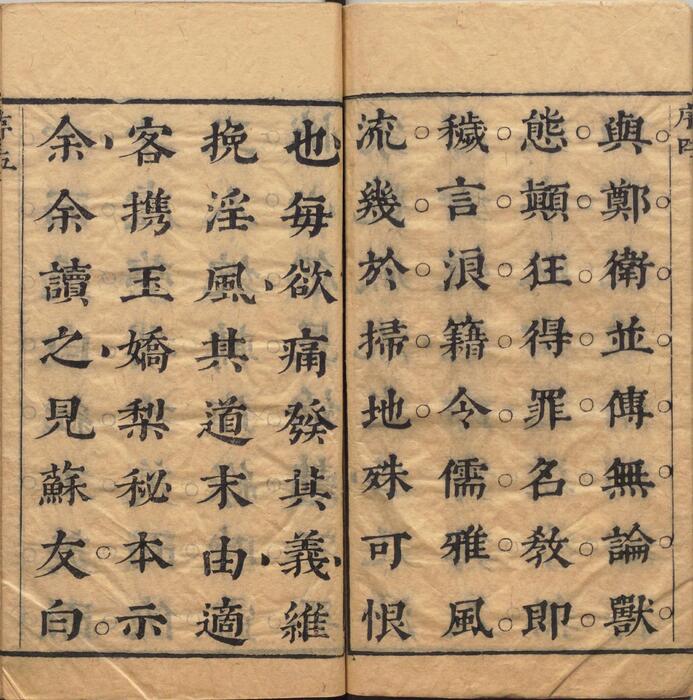 序四
與鄭衛並傳無論獸
態顛狂得罪名教即
穢言浪籍令儒雅風
流幾於掃地殊可恨
也每欲痛發其義維
挽淫風其道末由適
客攜玉嬌梨秘本示
余余讀之見蘇友白
序五